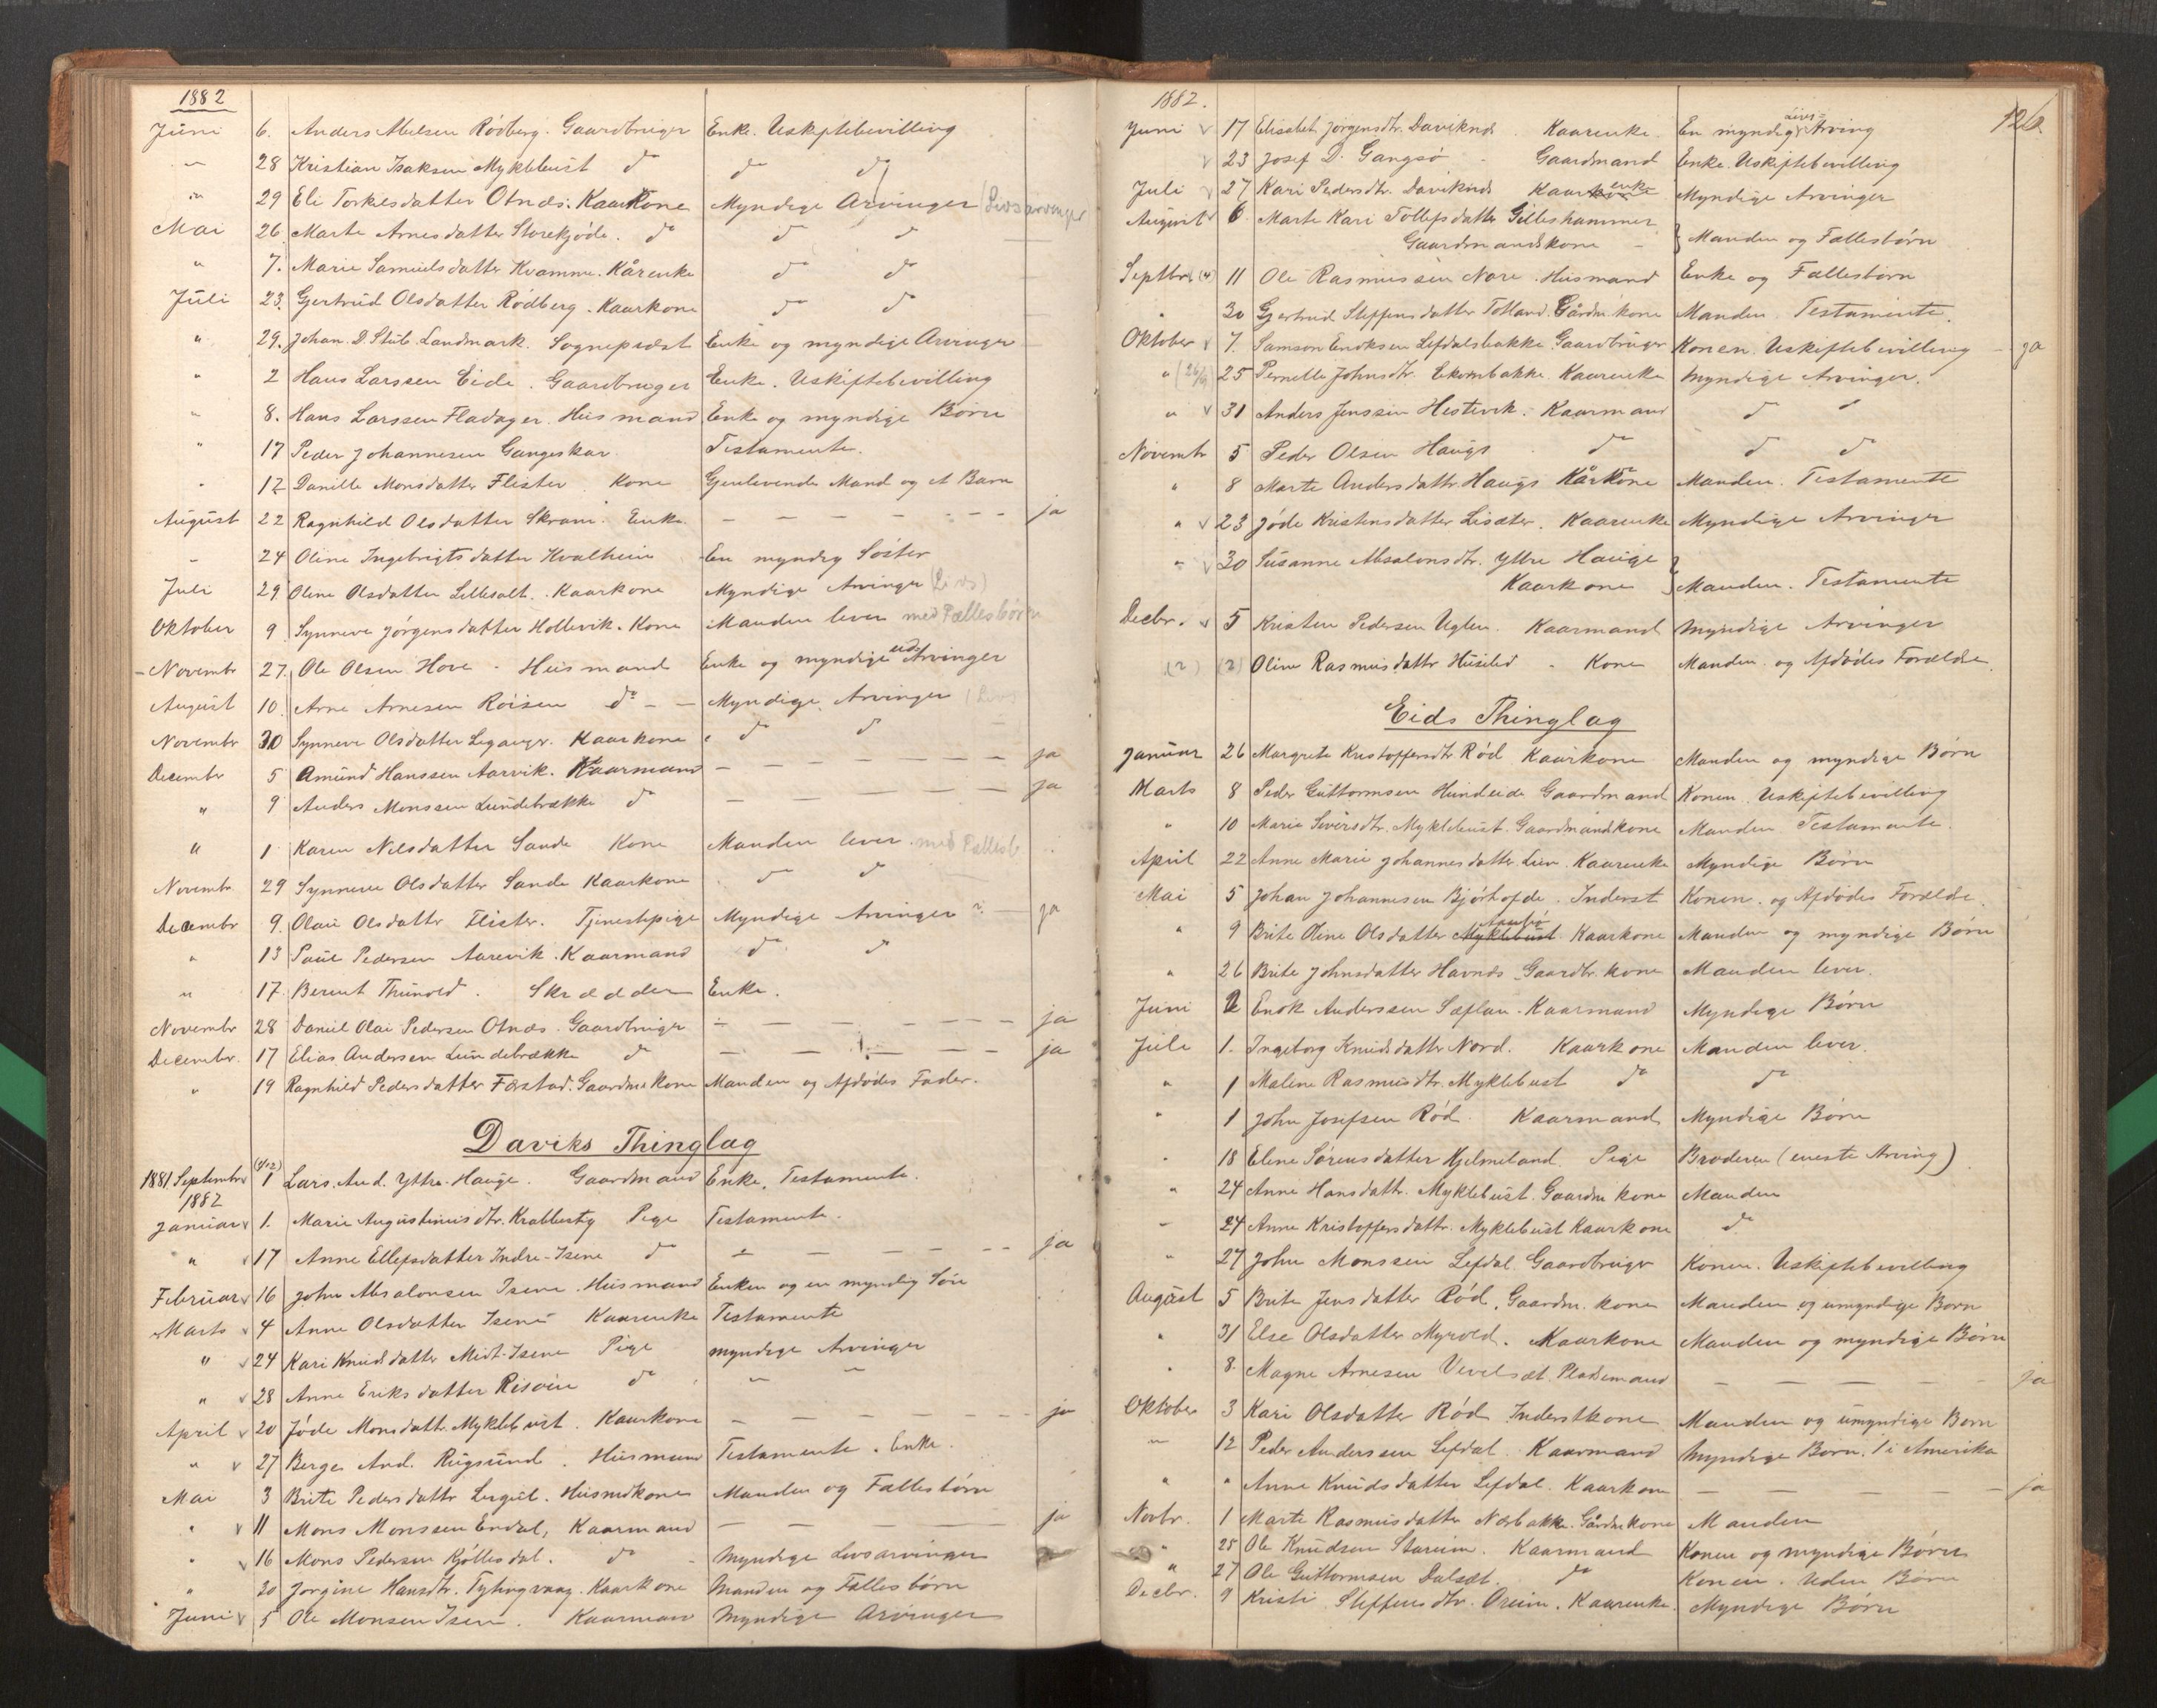 1882
Juni 6. Anders Abelsen Rødberg. Gaardbruger Enke. Uskiftebevilling
" 28 Kristian Isaksen Myklebust do do do
" 29 Eli Torkelsdatter Otnes. Kaarkone Myndige Arvinger (Livsarvinger
Mai 26. Marte Arnesdatter Storekjøde. do do do
" 7. Marie Samuelsdatter Kvamme. Kårenke do do
Juli 23. Gjertrud Olsdatter Rødberg. Kaarkone do do
" 29. Johan D. Stub Landmark. Sogneprest Enke og myndige Arvinger
" 2 Hans Larssen Eide. Gaardbruger Enke. Uskiftebevilling
" 8. Hans Larssen Fladager. Husmand Enke og myndige Børn
" 17 Peder Johannesen Gangeskar. Testamente.
" 12 Danille Monsdatter Flister Kone Gjenlevende Mand og et Barn
August 22 Ragnhild Olsdatter Skram. Enke. – – – – – – ja
" 24 Oline Ingebrigtsdatter Hvalheim En myndig Søster
Juli 29 Oline Olsdatter Lillesalt. Kaarkone Myndige Arvinger (Livs)
Oktober 9 Synneve Jørgensdatter Hollevik. Kone Manden lever med Fællesbørn
Novembr 27. Ole Olsen Hove. Husmand Enke og myndige Arvinger
August 10. Arne Arnesen Røisen do Myndige Arvinger (Livs
Novembr 30 Synneve Olsdatter Leganger. Kaarkone do do
Decembr 5 Amund Hanssen Aarvik. Kaarmand – – – – – – ja
" 9 Anders Monssen Lundebrække do – – – – – – ja
" 1 Karen Nilsdatter Sande Kone Manden lever. med Fællesb
Novembr 29 Synneve Olsdatter Sande Kaarkone do do
Decembr 9. Olau Olsdattr Flister. Tjenestepige Myndige Arvinger ? – ja
" 13 Paul Pedersen Aarevik. Kaarmand do do
" 17. Berent Thunold. Skrædder Enke.
Novembr 28 Daniel Olai Pedersen Otnæs. Gaardbruger – – – – – – ja
Decembr. 17 Elias Andersen Lundebrække do – – – – – – ja
" 19 Ragnhild Pedersdatter Færstad. Gaardmkone Manden og Afdødes Fader.
Daviks Thinglag
1881 Septembr 1 Lars And. Yttre-Hauge. Gaardmand Enke. Testamente.
1882
Januar 1. Marie Augustinusdtr. Krabbestig Pige Testamente.
" 17 Anne Ellefsdatter Indre-Isene do – – – – – – ja
Februar 16 John Absalonsen Isene. Husmand Enken og en myndig Søn
Marts 4 Anne Olsdatter Isene Kaarenke Testamente
" 24 Kari Knudsdatter Midt-Isene Pige myndige Arvinger
" 28 Anne Eriksdatter Risøin do " "
April 20 Jøde Monsdattr. Myklebust. Kaarkone – – – – – – ja
" 27 Berge And. Rugsund. Husmand Testamente. Enke.
Mai 3 Brite Pedersdattr Husmdkone Manden og Fællesbørn
" 11 Mons Monssen Endal, Kaarmand – – – – ja
" 16 Mons Pedersen Kjøllesdal. do Myndige Livsarvinger
" 20 Jorgine Hansdtr. Tytingvaag. Kaarkone Manden og Fællesbørn
Juni 5 Ole Monsen Isene. Kaarmand Myndige Arvinger
1882. 126.
Juni 17 Elisabet Jørgensdtr. Daviknes Kaarenke. En myndig Livs-Arving
23 Josef D. Gangsø Gaardmand Enke. Uskiftebevilling
Juli 27 Kari Pedersdtr. Daviknes Kaarkone enke Myndige Arvinger
August 6. Marte Kari Tollefsdatter Gilleshammer
Gaardmandskone } Manden og Fællesbørn
Septbr. (4) 11 Ole Rasmussen Nore. Husmand Enke og Fællesbørn
" 30 Gjertrud Steffensdatter Totland. Gårdm. kone Manden. Testamente.
Oktober 7. Samson Enoksen Lefdalsbakke. Gaardbruger Konen. Uskiftebevilling – ja
" (26/9) 25 Pernelle Johnsdtr. Ekornbakke. Kaarenke Myndige Arvinger.
" 31 Anders Jenssen Hestevik. Kaarmand do do
Novembr 5 Peder Olsen Haugs do do do
" 8 Marte Andersdattr. Haugs Kårkone Manden. Testamente
" 23 Jøde Kristensdatter Lisæter. Kaarenke Myndige Arvinger
" 30 Susanne Absalonsdtr. Yttre Hauge
Kaarkone } Manden. Testamente
Decbr. 5 Kristen Pedersen Uglen. Kaarmand Myndige Arvinger
(2) (2) Oline Rasmusdattr Husebø Kone Manden og Afdødes Forældre.
Eids Thinglag
Januar 26 Margrete Kristoffersdtr Rød Kaarkone Manden og myndige Børn
Marts 8 Peder Guttormsen Hundeide Gaardmand Konen. Uskiftebevilling
" 10 Marie Siversdtr. Myklebust. Gaardmandskone Manden Testamente.
April 22 Anne Marie Johannesdatter Lien. Kaarenke Myndige Børn
Mai 5 Johan Johannesen Bjørhofde. Inderst Konen. og Afdødes Forældre.
" 9 Brite Oline Olsdatter Myklebust. Kaarkone Manden og myndige Børn
" 26 Brite Johnsdatter Havnæs Gaardbr. kone Manden lever.
Juni 2 Enok Anderssen Sæflan. Kaarmand Myndige Børn
Juli 1. Ingeborg Knudsdatter Nord. Kaarkone Manden lever.
" 1 Malene Rasmusdtr. Myklebust do do
" 1 John Josefsen Rød. Kaarmand Myndige Børn
" 18 Elene Sørensdatter Hjelmeland. Pige Broderen (eneste Arving)
" 24 Anne Hansdattr. Myklebust. Gaardm kone Manden
" 24 Anne Kristoffersdattr. Myklebust Kaarkone do
" 27 John Monssen Lefdal. Gaardbruger Konen. Uskiftebevilling
August 5 Brite Jensdatter Rød. Gaardm. kone Manden og umyndige Børn
" 31 Else Olsdatter Myrold. Kaarkone Manden og myndige Børn
" 8. Magne Arnesen Vevelsæt. Pladsemand – – – – – ja
Oktober 3 Kari Olsdatter Rød Inderstkone Manden og umyndige Børn
" 12 Peder Anderssen Lefdal. Kaarmand Myndige Børn. 1 i Amerika
" " Anne Knudsdatter Lefdal. Kaarkone – – – – – ja
Novbr. 1 Marte Rasmusdatter Nærbakke. Gårdmkone Manden
" 25 Ole Knudsen Stareim. Kaarmand Konen og myndige Børn
" 27 Ole Guttormsen Dalsæt. do Konen. Uden Børn
Decbr. 9 Kristi Steffensdtr. Øreim. Kaarenke. Myndige Børn